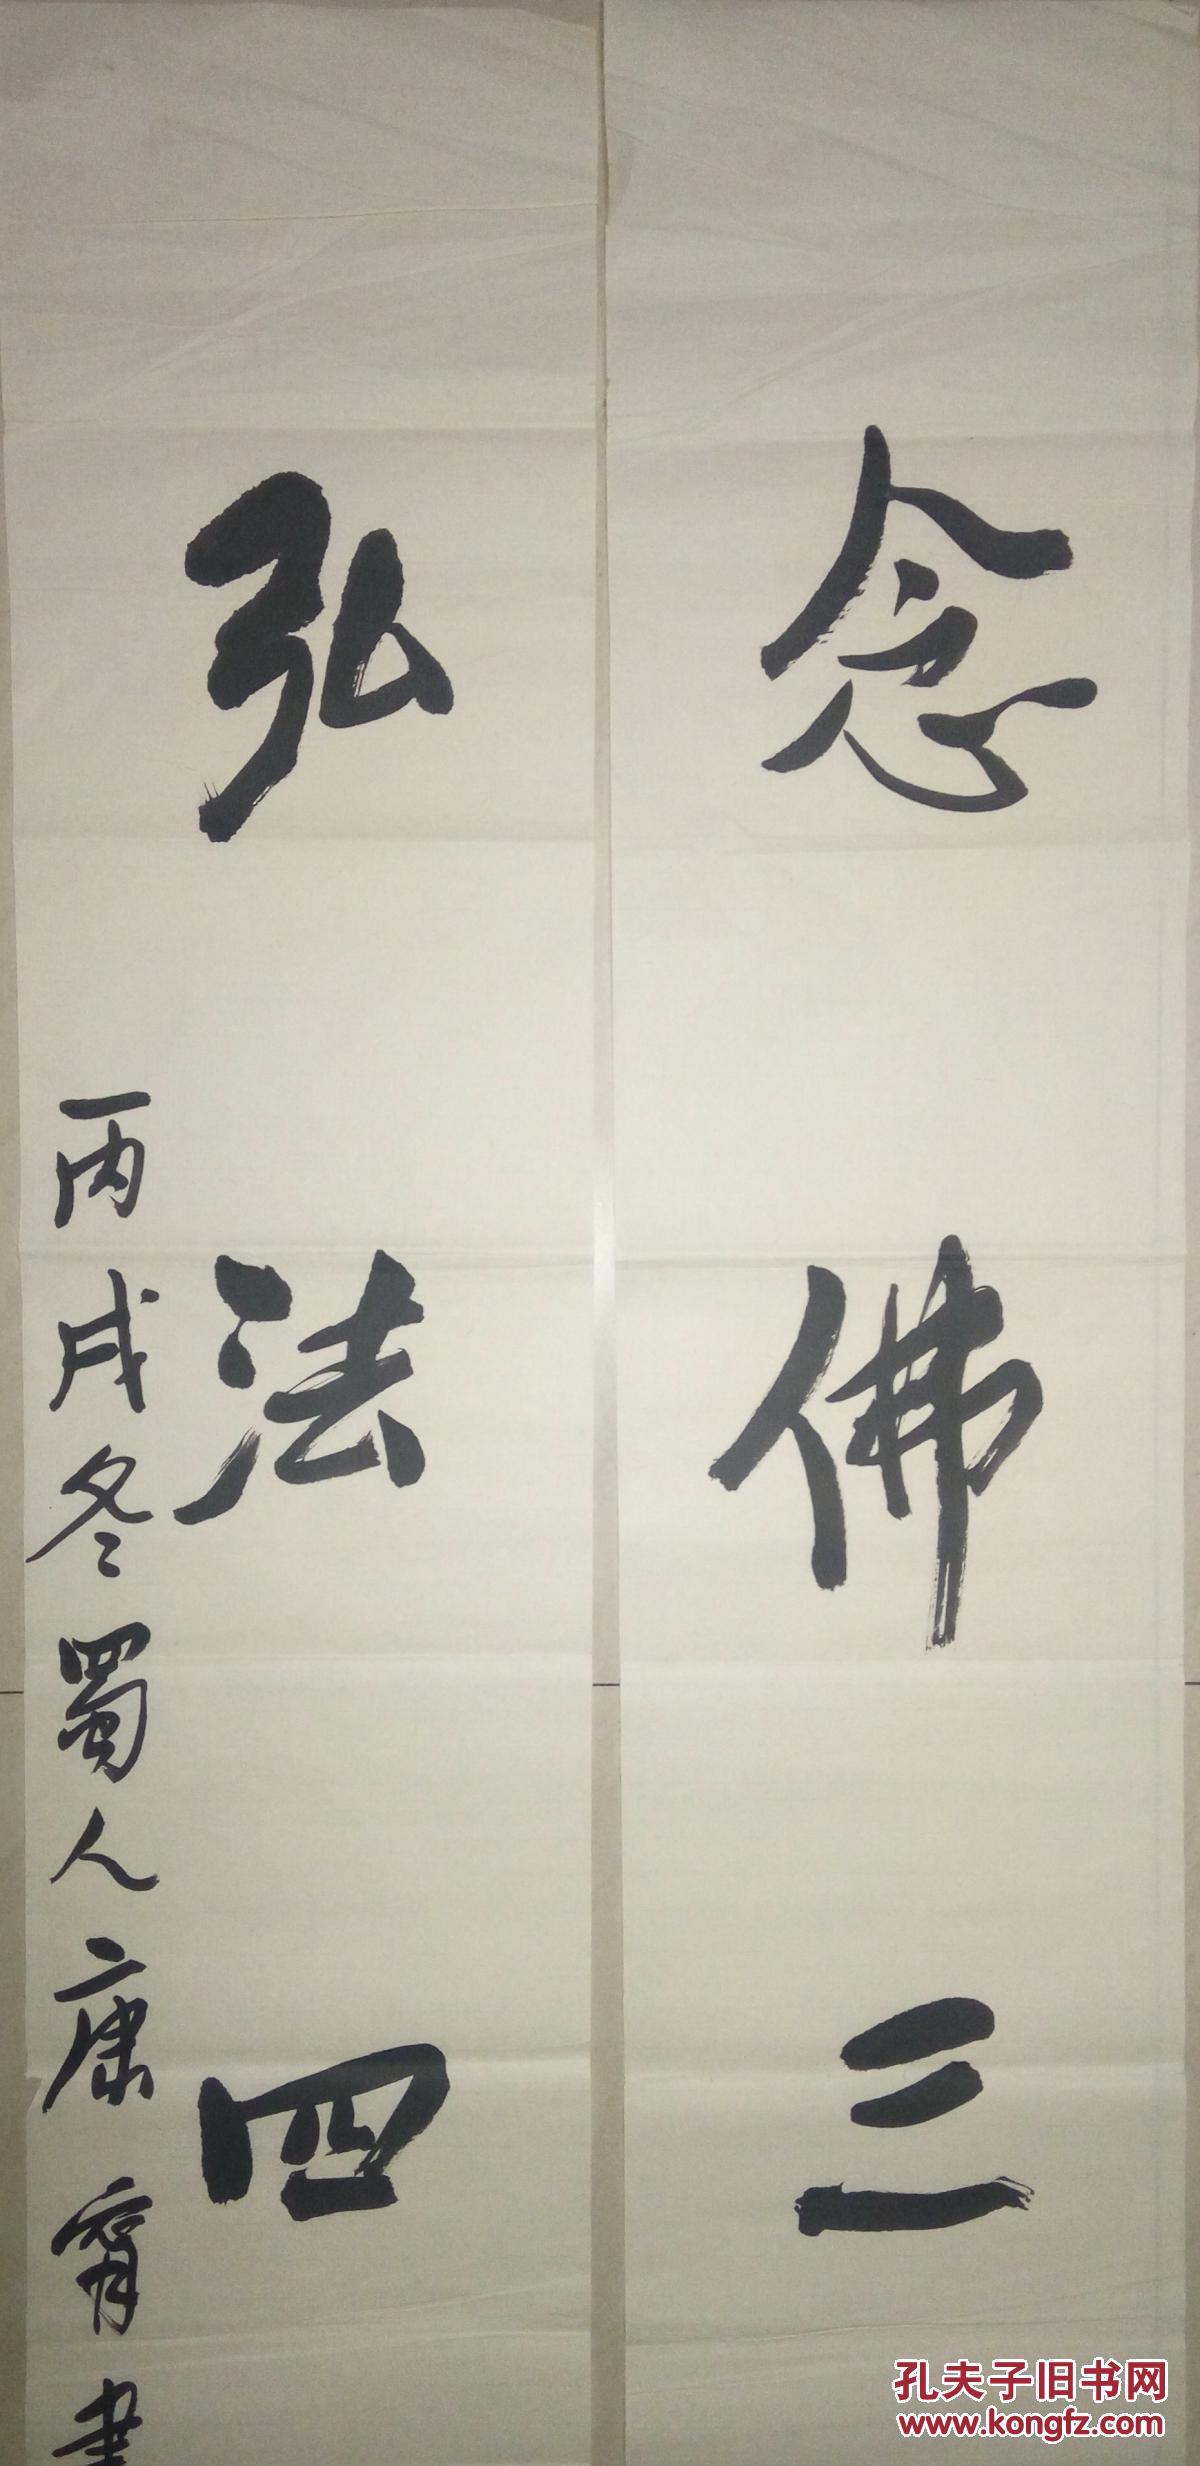 念佛三
弘法四
丙戌冬蜀人康宁書
孔夫子旧书网
www.kongfz.com